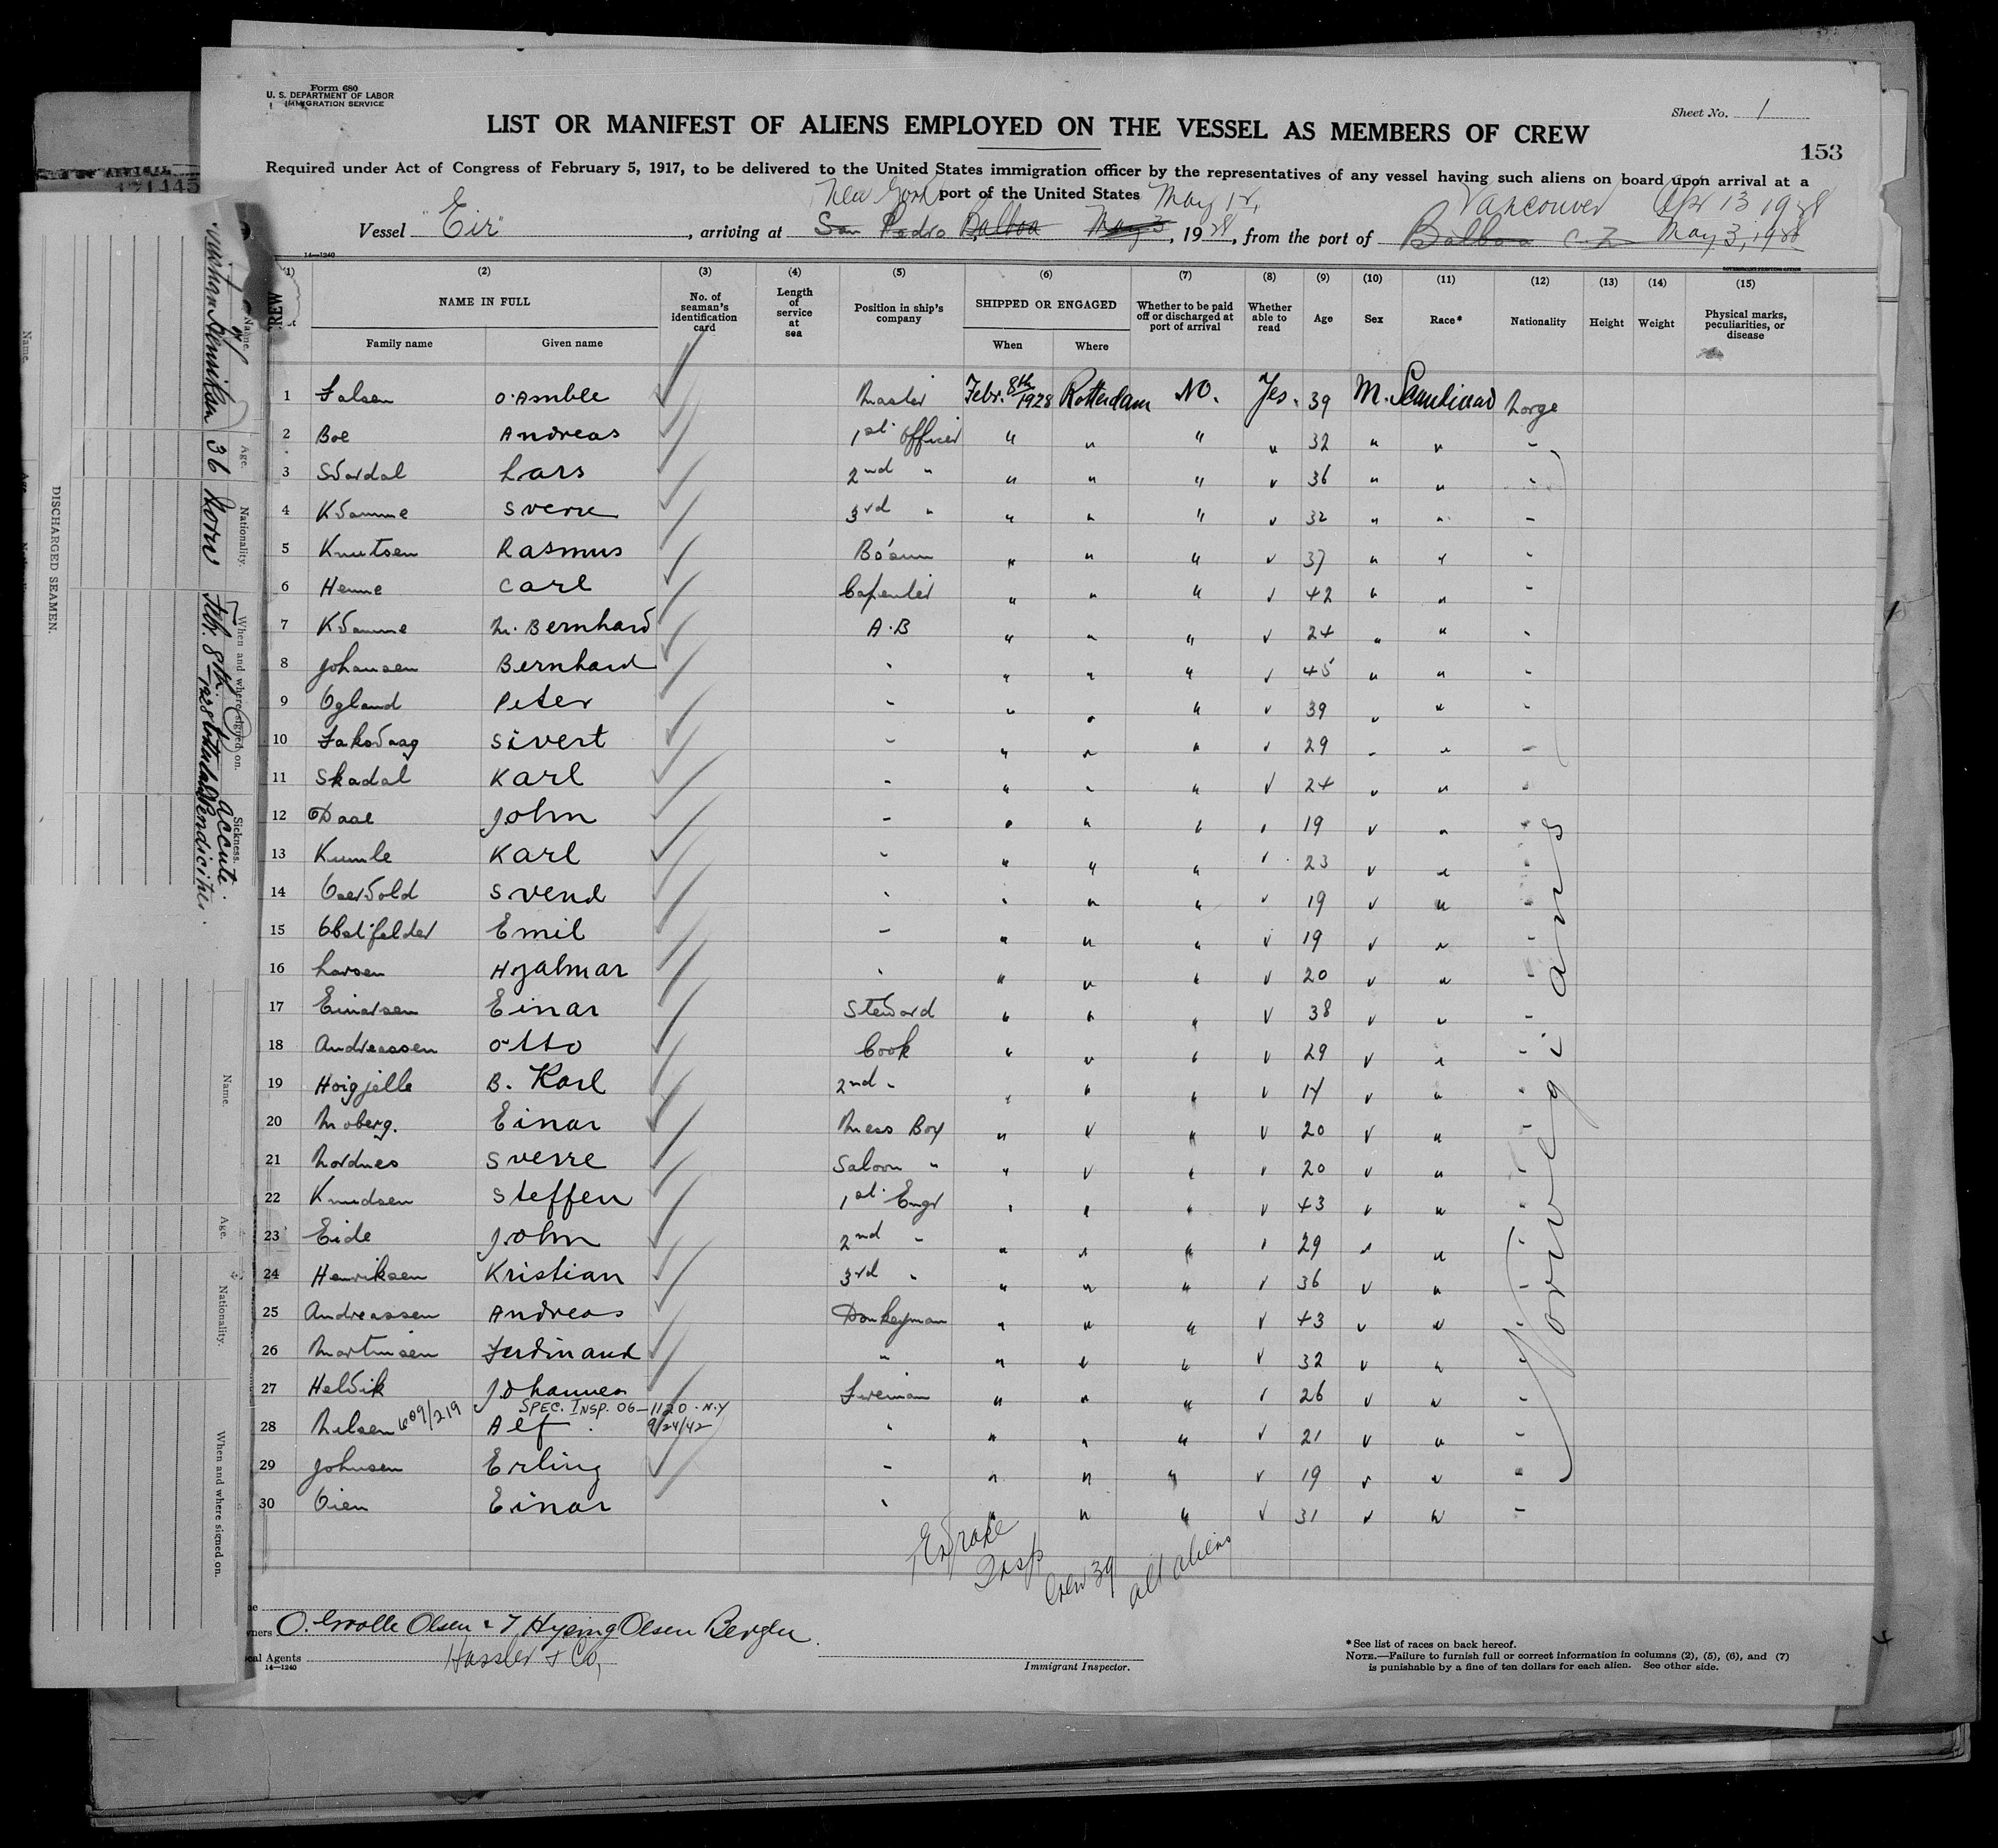 Form 680
U. S. DEPARTMENT OF LABOR
IMMIGRATION SERVICE
Sheet No. 1
LIST OR MANIFEST OF ALIENS EMPLOYED ON THE VESSEL AS MEMBERS OF CREW
153
Required under Act of Congress of February 5, 1917, to be delivered to the United States immigration officer by the representatives of any vessel having such aliens on board upon arrival at a
port of the United States
New York May 12, Vancouver Apr 13 1928
Vessel "Eir", arriving at San Pedro Balboa May 3, 1928, from the port of Balboa C Z May 3, 1928
14—1240
(1) (2) (3) (4) (5) (6) (7) (8) (9) (10) (11) (12) (13) (14) (15)
NAME IN FULL
Family name Given name
No. of seaman's identification card
Length of service at sea
Position in ship's company
SHIPPED OR ENGAGED
When Where
Whether to be paid off or discharged at port of arrival
Whether able to read
Age
Sex
Race*
Nationality
Height
Weight
Physical marks, peculiarities, or disease
1 Falsen O. Amble Master Febr. 8th 1928 Rotterdam No. Yes. 39 M. Scandinav Norge
2 Boe Andreas 1st officer " " " " 32 " " "
3 Svardal Lars 2nd " " " " " 36 " " "
4 Kvamme Sverre 3rd " " " " " 32 " " "
5 Knutsen Rasmus Bo'sun " " " " 37 " " "
6 Henne Carl Capenter " " " " 42 " " "
7 Kvamme M. Bernhard A.B " " " " 24 " " "
8 Johansen Bernhard " " " " " 45 " " "
9 Ogland Peter " " " " " 39 " " "
10 Faksvaag Sivert " " " " " 29 " " "
11 Skadal Karl " " " " " 24 " " "
12 Daae John " " " " " 19 " " "
13 Kumle Karl " " " " " 23 " " "
14 Svend " " " " " 19 " " "
15 Obstfelder Emil " " " " " 19 " " "
16 Larsen Hjalmar " " " " " 20 " " "
17 Einarsen Einar Steward " " " " 38 " " "
18 Andreassen Otto Cook " " " " 29 " " "
19 Hoigjelle B. Karl 2nd " " " " " 17 " " "
20 Moberg. Einar Mess Boy " " " " 20 " " "
21 Nordnes Sverre Saloon " " " " " 20 " " "
22 Knudsen Steffen 1st Engr " " " " 43 " " "
23 Eide John 2nd " " " " " 29 " " "
24 Henriksen Kristian 3rd " " " " " 36 " " "
25 Andreassen Andreas Donkeyman " " " " 43 " " "
26 Martinsen Ferdinand " " " " " 32 " " "
27 Helvik Johannes Fireman " " " " 26 " " "
SPEC. INSP. 06-1120 . N.Y
28 Nilsen 609/219 Alf 9/24/42 " " " " " 21 " " "
29 Johnsen Erling " " " " " 19 " " "
30 Oien Einar " " " " " 31 " " "
Norwegians
Insp
Crew 39 all aliens
O. Grolle Olsen & T Hysing Olsen Bergen.
Agents Hassler & Co,
14—1240
Immigrant Inspector.
*See list of races on back hereof.
NOTE.—Failure to furnish full or correct information in columns (2), (5), (6), and (7)
is punishable by a fine of ten dollars for each alien. See other side.
DISCHARGED SEAMEN.
Name. Age. Nationality. When and where signed on. Sickness.
Kristian Henriksen 36 Norw Febr. 8th 1928 Rotterdam accute
Name. Age. Nationality. When and where signed on.